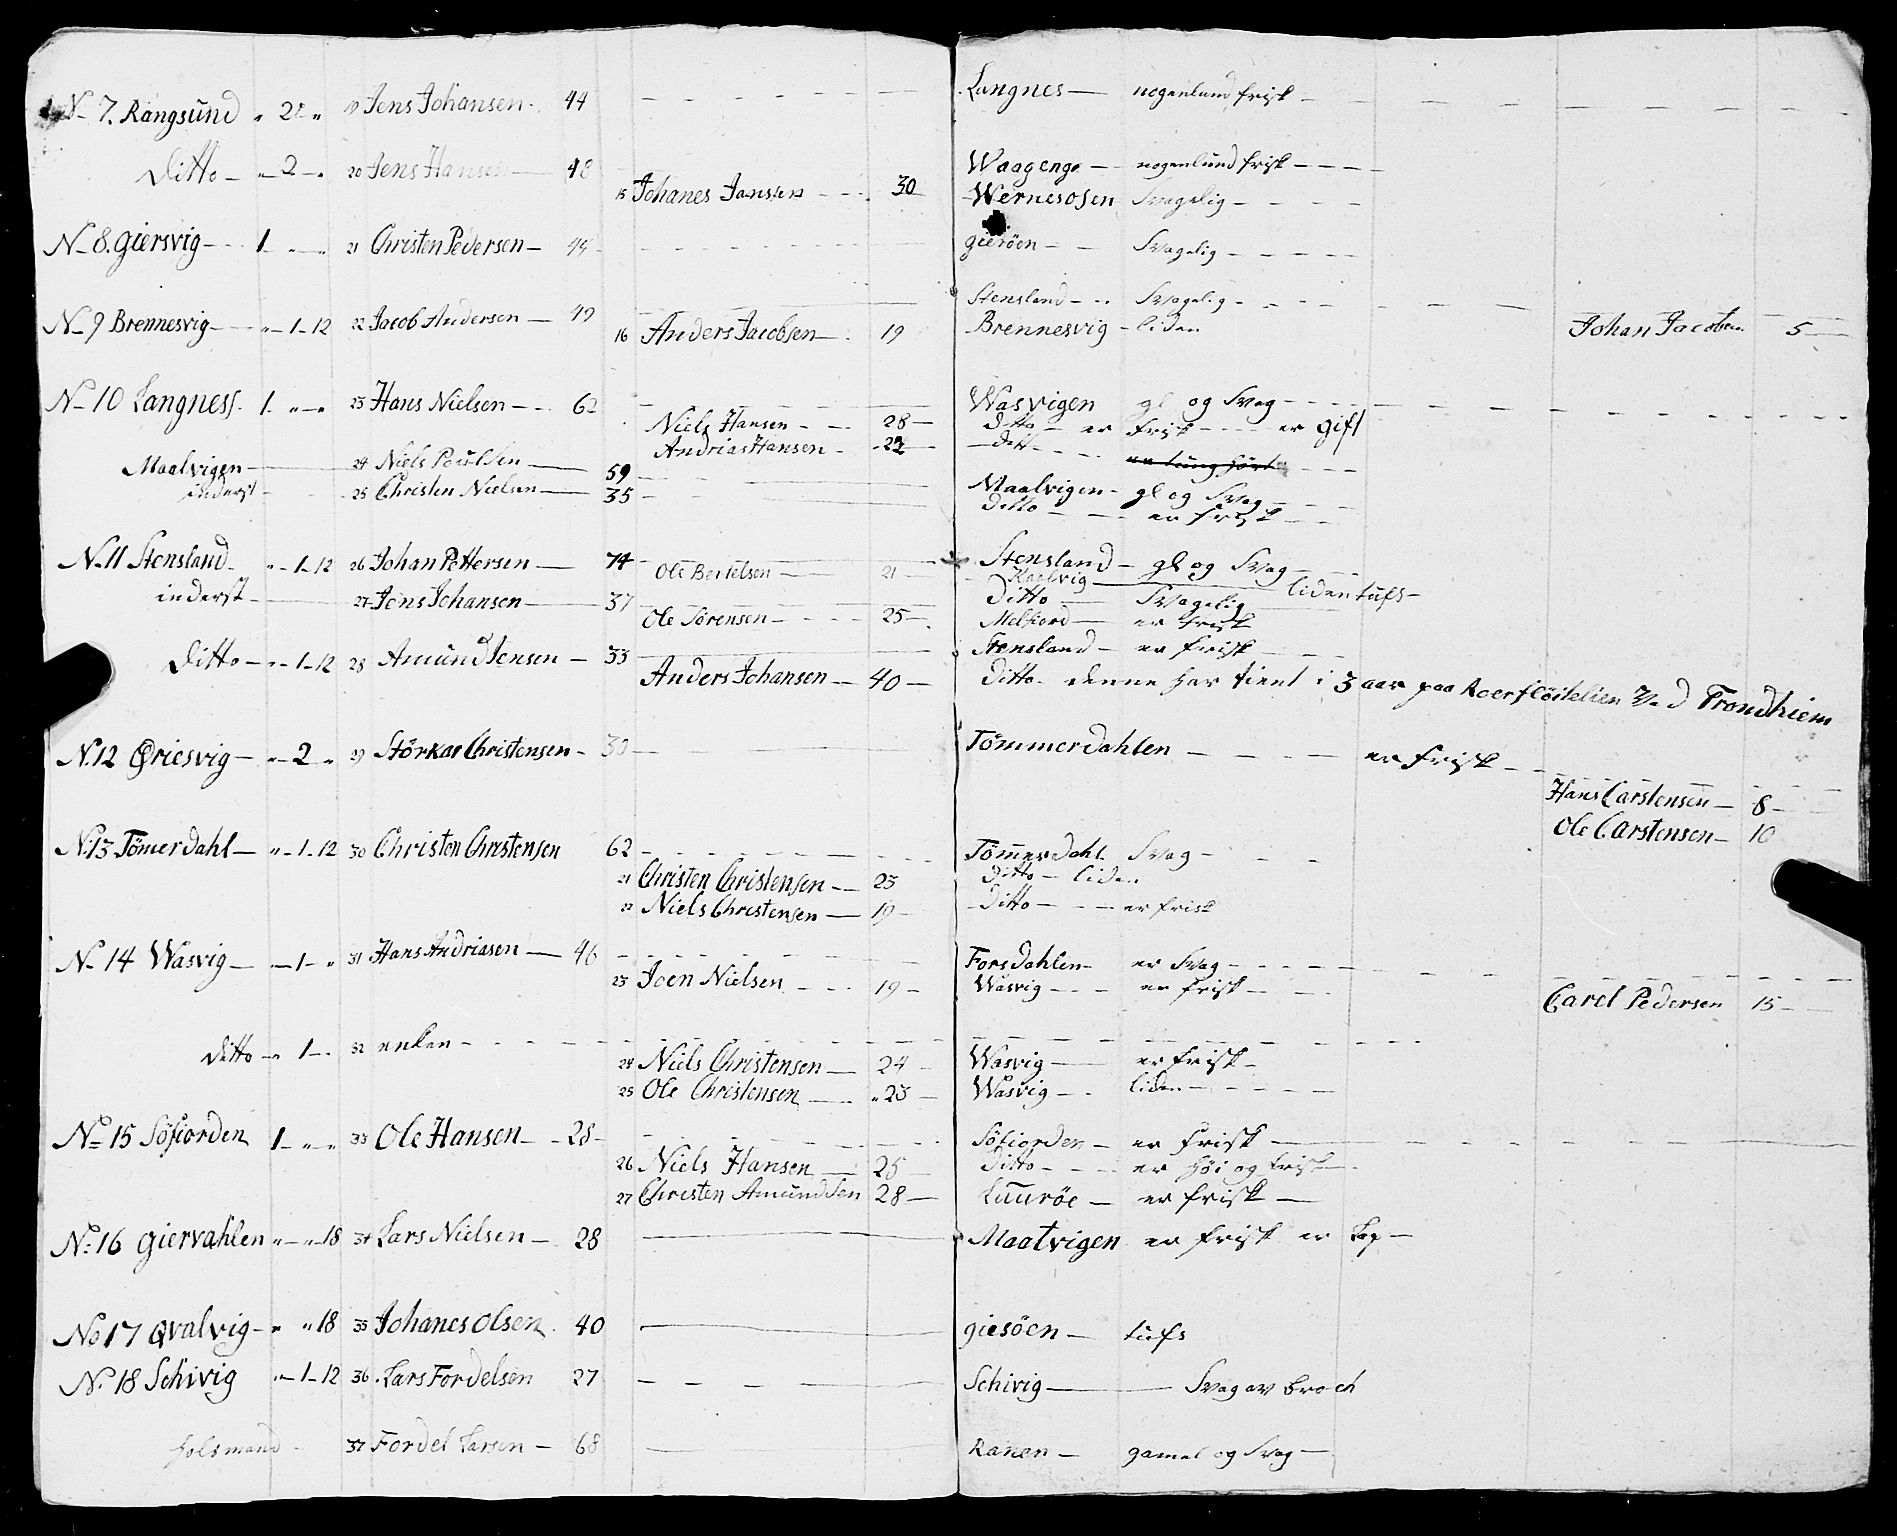 N 7. Rangsund " 2 " 19 Jens Johansen 44 Langnes nogenlund frisk
Ditto 2 20 Jens Hansen 48 Waagenge nogenlund frisk
15 Johanes Jansen 30 Wernesosen Svagelig
N 8. giersvig 1 21 Christen Pedersen 44 gierøen Svagelig
Stensland Svagelig
N 9 Brennesvig 1-12 22 Jacob Andersen 49
16 Anders Jacobsen 19 Brennesvig liden Johan Jacobsen 5
N 10 Langness 1 23 Hans Nielsen 62 Wasvigen gl og Svag
Niels Hansen 28 Ditto er frisk er gift
Andrias Hansen 22 dito er tunghørt
Maalvigen 24 Niels Poulsen 59 Maalvigen gl og Svag
inderst 25 Christen Nielsen 35 Ditto er frisk
N. 11 Stensland 1-12 26 Johan Pettersen 74 Stensland gl og Svag
Ole Bertelsen 21 Kaalvig liden tufs
inderst 27 Jens Johansen 37 Ditto Svagelig
Ole Sørensen 25 Melfiord er frisk
Ditto 1-12 28 Amund Jensen 33 Stensland er frisk
Anders Johansen 40 Ditto denne har tient i 3 aar paa Roerfløitelien Ved Trondhiem
N. 12 Øriesvig 2 29 Størkar Christensen 30 Tømmerdahlen er frisk
Hans Carstensen 8
Ole Carstensen 10
N. 13 Tømerdahl 1-12 30 Christen Christensen 62 Tømmerdahl Svag
21 Christen Christensen 23 Ditto liden
22 Niels Christensen 19 Ditto er frisk
N 14 Wasvig 1 31 Hans Andriasen 46 Forsdahlen er Svag
23 Joen Nielsen 19 Wasvig er frisk
Carel Pedersen 15
Ditto 1 32 enken
24 Niels Christensen 24 Wasvig er frisk
25 Ole Christensen 23 Wasvig liden
No 15 Søfiorden 1 33 Ole Hansen 28 Søfiorden er frisk
26 Niels Hansen 25 Ditto er høi og frisk
27 Christen Amundsen 28 Luurøe er frisk
No. 16 giervahlen 18 34 Lars Nielsen 28 Maatvigen er frisk er
No 17 Qvalvig 18 35 Johanes Olsen 40 giesøen tufs
N. 18 Schivig 1-12 36 Lars Fordelsen 27 Schivig Svag av broch
holsmand 37 Fordel Larsen 68 Ranen gamel og Svag